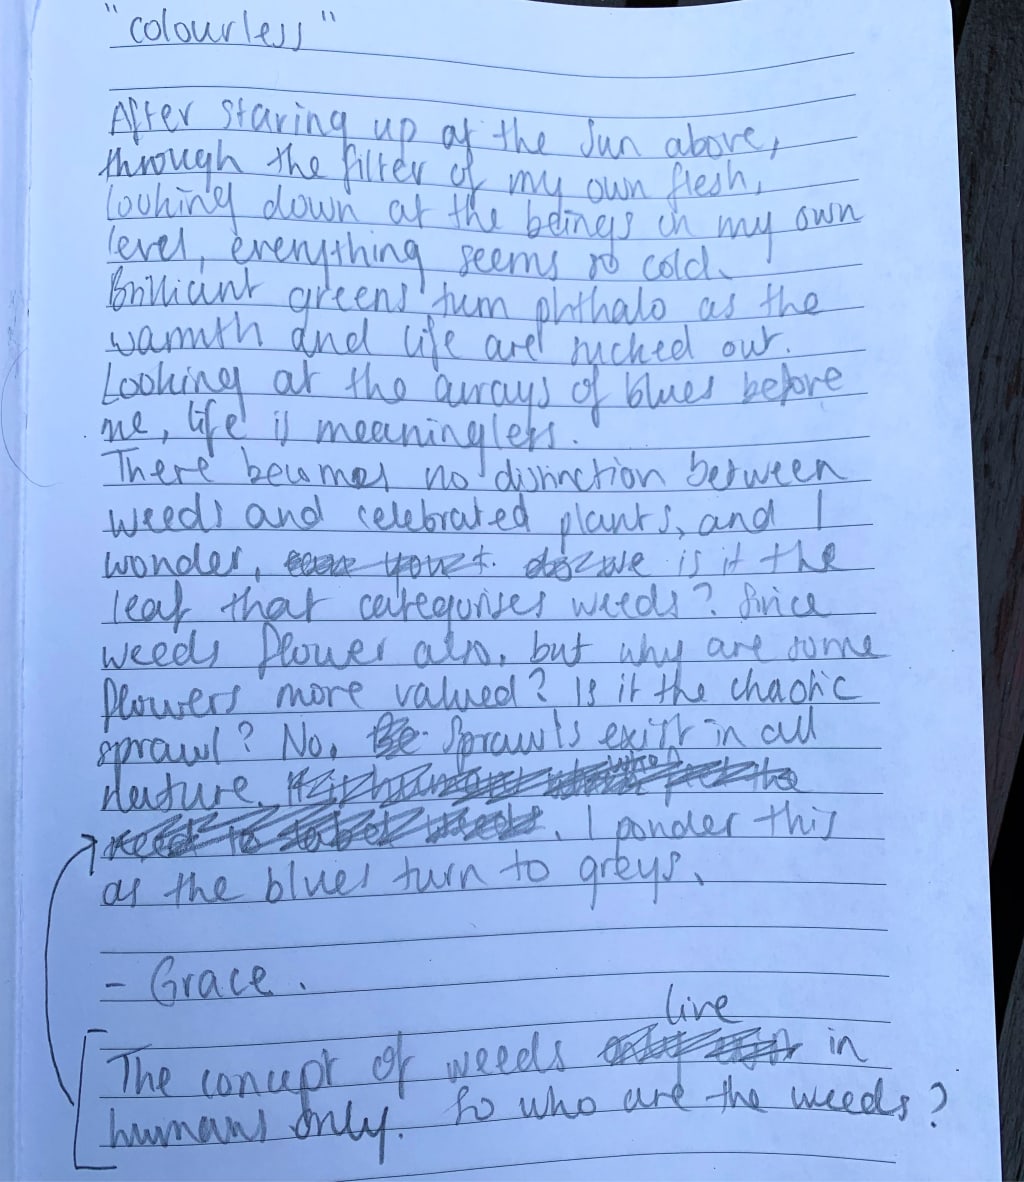 "colourless"
After staring up at the sun above,
through the filter of my own flesh,
looking down at the beings on my own
level, everything seems so cold.
Brilliant greens turn phthalo as the
warmth and life are sucked out.
Looking at the arrays of blues before
me, life is meaningless.
There becomes no distinction between
weeds and celebrated plants, and I
wonder, is it the
leaf that categorises weeds? Since
weeds flower also, but why are some
flowers more valued? Is it the chaotic
sprawl? No, Sprawls exist in all
nature.
I ponder this
as the blues turn to greys.
- Grace.
live
The concept of weeds in
humans only. So who are the weeds?